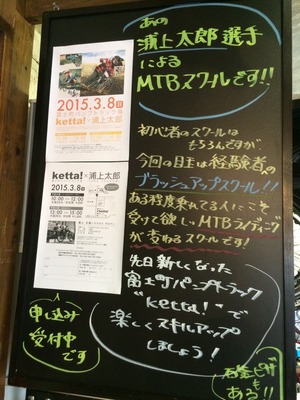 あの
浦上太郎選手
による
MTBスクールです!!
初心者のスクールは
もちろんですが、
今回の目玉は経験者の
ブラッシュアップスクール!!
ある程度乗れてる人にこそ
受けて欲しいMTBライディング
が変わるスクールです!
先日新しくなった
富士町パンプトラック
"ketta!"で
楽しくスキルアップ
しましょう!
申し込み
受付中
です
石窯ピザ
も
ある!!
2015.3.8
富士町パンプトラック
ketta!×浦上太郎
ketta!×浦上太郎
2015.3.8
10:00
13:00